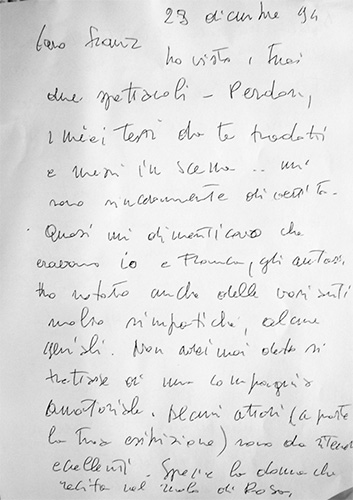 23 dicembre 94
Caro Franz
ho visto i tuoi
due spettacoli - Perdon,
i miei testi da te tradotti
e messi in scena .. mi
sono sinceramente divertito.
Quasi mi dimenticavo che
eravamo io e Franca, gli autori.
Ho notato anche delle varianti
molto simpatiche, alcune
geniali. Non avrei mai detto si
trattasse di una compagnia
amatoriale. Alcuni attori (a parte
la tua esibizione) sono da
eccellenti. Specie la donna che
recita nel ruolo di Rosa,